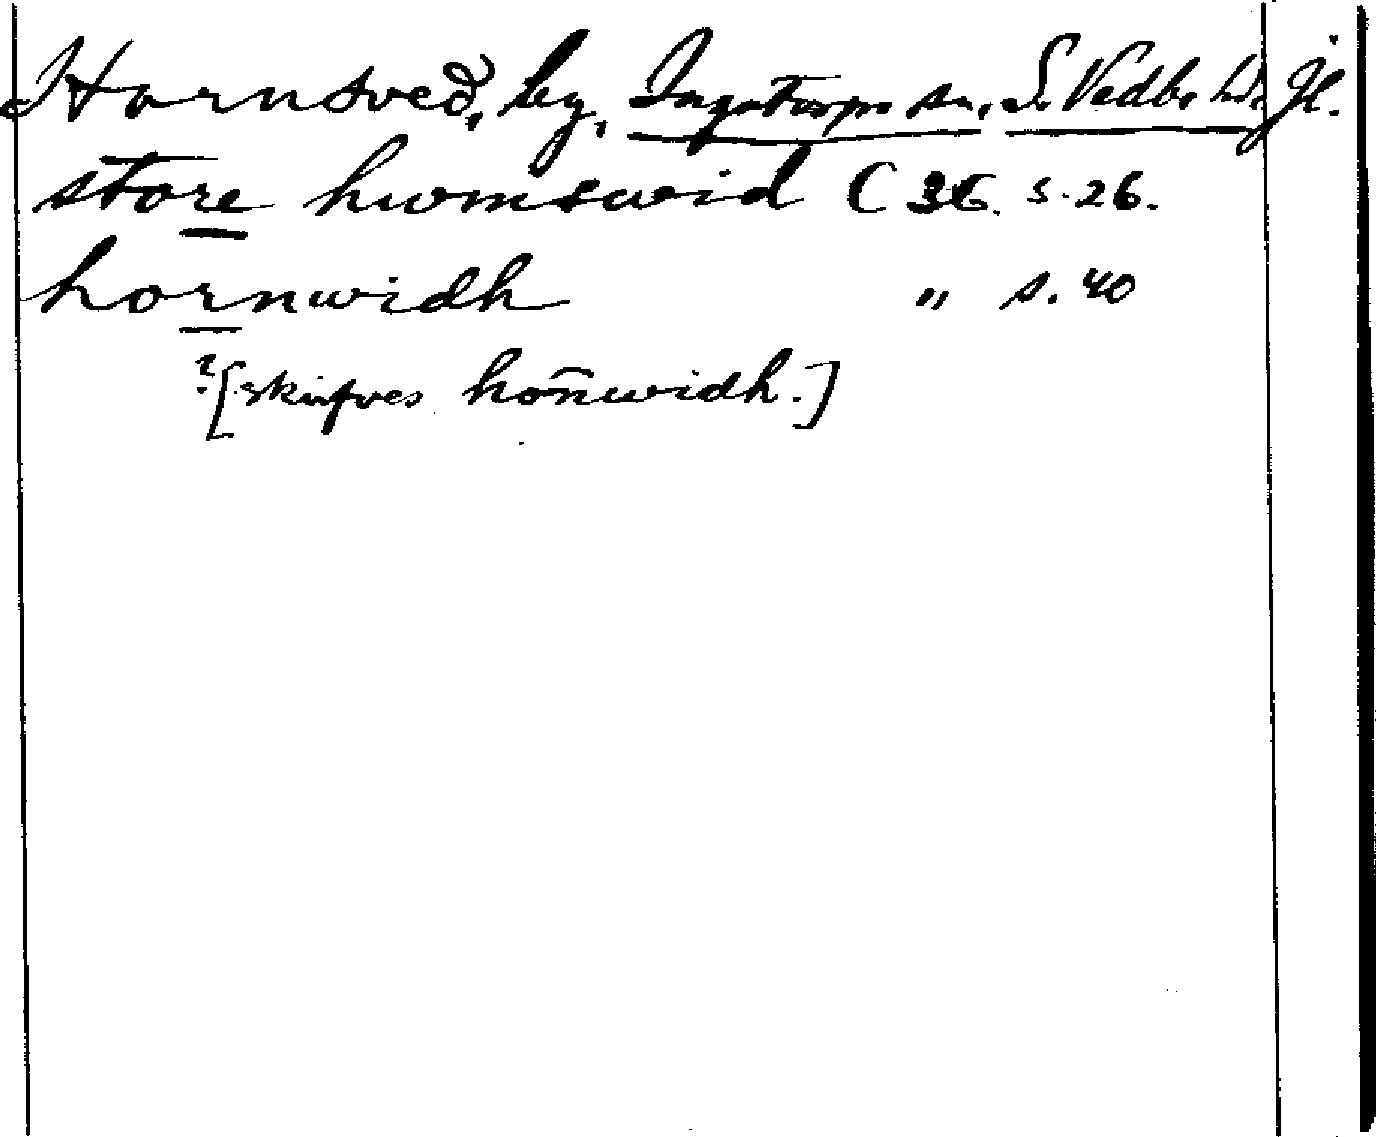 Hornsved, by, Ingatorps sn, S. Vedbo hd. Jl.
store hwmswid C 36. s. 26.
hornwidh " s. 40
?[skrifves hon̄widh.]